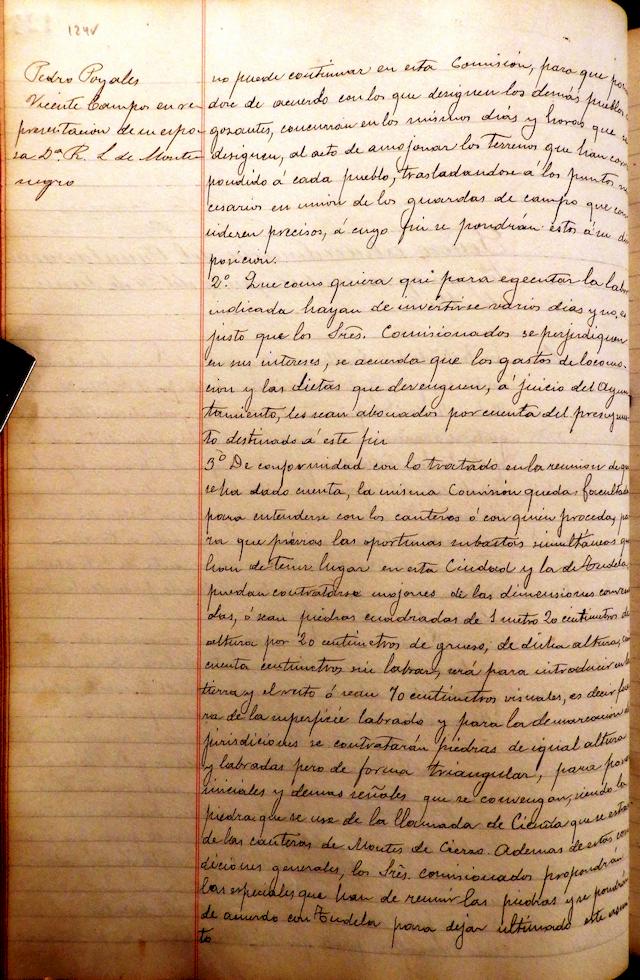 124v
Pedro Pozales
Vicente Campos en re-
presentacion de su espo-
sa Dª R. L. de Monte-
negro
no puede continuar en esta Comisión, para que
doce de acuerdo con los que designen los demás pueblos
gozantes, concurran en los mismos dias y horas que se
designen, al acto de amojonar los terrenos que han
pondido á cada pueblo, trasladandose á los puntos
cesarios en union de los guardas de campo que
sideren precisos, á cuyo fin se pondrán estos á su
posicion.
2º Que como quiera qui para egecutar la
indicada hayan de invertirse varios dias y no,
justo que los Srẽs. Comisionados se perjudiquen
en sus intereses, se acuerda que los gastos de locomo-
cion y las dietas que devenguen, á juicio del
tamiento, les sean abonados por cuenta del
to destinado á este fin
3º De conformidad con lo tratado en la reunion de
se ha dado cuenta, la misma Comisión queda
para entenderse con los canteros ó con quien proceda,
ra que previas las oportunas subastas simultaneas
han de tener lugar en esta Ciudad y la de Tudela,
puedan contratarse mojones de las dimensiones
das, ó sean piedras cuadradas de 1 metro 20 centimetros de
altura por 20 centimetros de grueso, de dicha altura,
cuenta centimetros sin labrar, será para introducir en la
tierra y el resto ó sean 70 centimetros visuales, es decir
ra de la superficie labrado y para la demarcacion
jurisdiciones se contratarán piedras de igual altura
y labradas pero de forma triangular, para
iniciales y demas señales que se convengan, siendo la
piedra que se use de la llamada de que se
de las canteras de Montes de Cierzo. Ademas de estas
diciones generales, los Srẽs. comisionados propondrán
las especiales que han de reunir las piedras y se pondrán
de acuerdo con Tudela para dejar ultimado este
to